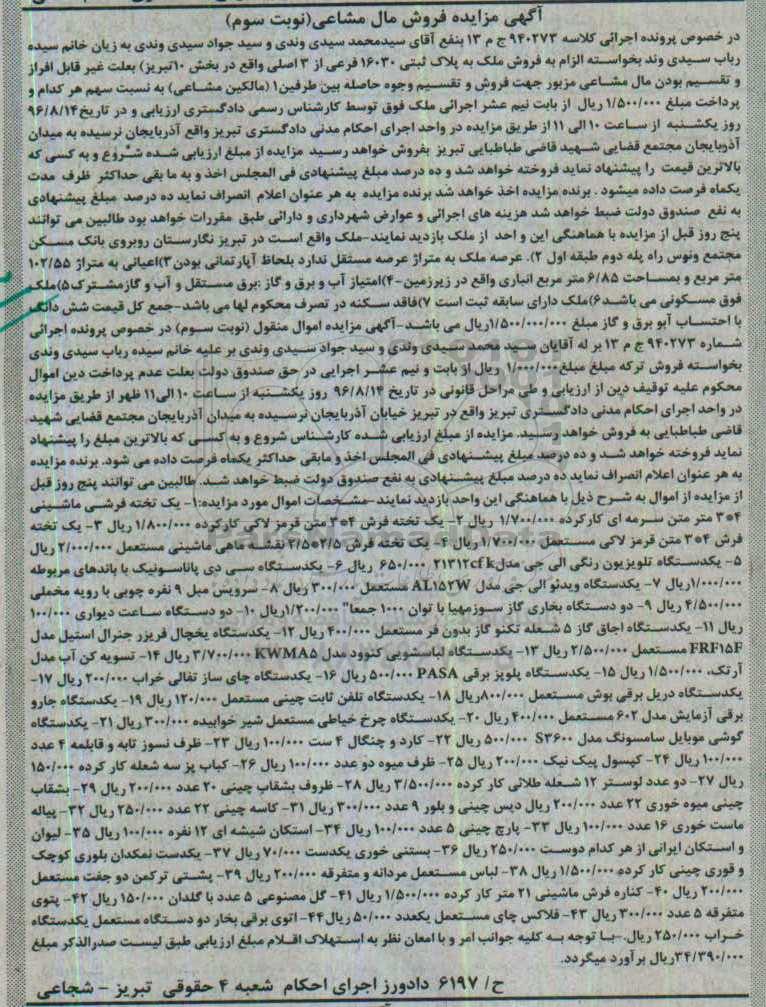 آگهی مزایده فروش مال مشاعی(نوبت سوم)
در خصوص پرونده اجرائی کلاسه ۹۴۰۲۷۳ ج م ۱۳ بنفع آقای سیدمحمد سیدی وندی و سید جواد سیدی وندی به زیان خانم سیده
رباب سیدی وند بخواسته الزام به فروش ملک به پلاک ثبتی ۱۶۰۳۰ فرعی از ۳ اصلی واقع در بخش ۱۰تبریز) بعلت غیر قابل افراز
و تقسیم بودن مال مشاعی مزبور جهت فروش و تقسیم وجوه حاصله بین طرفین۱ (مالکین مشاعی) به نسبت سهم هر کدام و
پرداخت مبلغ ۱/۵۰۰/۰۰۰ ریال از بابت نیم عشر اجرائی ملک فوق توسط کارشناس رسمی دادگستری ارزیابی و در تاریخ۹۶/۸/۱۴
روز یکشنبه از ساعت ۱۰ الی ۱۱ از طریق مزایده در واحد اجرای احکام مدنی دادگستری تبریز واقع آذربایجان نرسیده به میدان
آذربایجان مجتمع قضایی شهید قاضی طباطبایی تبریز بفروش خواهد رسید مزایده از مبلغ ارزیابی شده شروع و به کسی که
بالاترین قیمت را پیشنهاد نماید فروخته خواهد شد و ده درصد مبلغ پیشنهادی فی المجلس اخذ و به ما بقی حداکثر ظرف مدت
یکماه فرصت داده میشود . برنده مزایده اخذ خواهد شد برنده مزایده به هر عنوان اعلام انصراف نماید ده درصد مبلغ پیشنهادی
به نفع صندوق دولت ضبط خواهد شد هزینه های اجرائی و عوارض شهرداری و دارائی طبق مقررات خواهد بود طالبین می توانند
پنج روز قبل از مزایده با هماهنگی این و احد از ملک بازدید نمایند-ملک واقع است در تبریز نگارستان روبروی بانک مسکن
مجتمع ونوس راه پله دوم طبقه اول ۲). عرصه ملک به متراژ عرصه مستقل ندارد بلحاظ آپارتمانی بودن۳)اعیانی به متراژ ۱۰۲/۵۵
متر مربع و بمساحت ۶/۸۵ متر مربع انباری واقع در زیرزمین-۴)امتیاز آب و برق و گاز :برق مستقل و آب و گازمشترک۵)ملک
فوق مسکونی می باشد۶)ملک دارای سابقه ثبت است ۷)فاقد سکنه در تصرف محکوم لها می باشد-جمع کل قیمت شش دانگ
با احتساب آبو برق و گاز مبلغ ۱/۵۰۰/۰۰۰/۰۰۰ریال می باشد-آگهی مزایده اموال منقول (نوبت سوم) در خصوص پرونده اجرائی
شماره ۹۴۰۲۷۳ ج م ۱۳ بر له آقایان سید محمد سیدی وندی و سید جواد سیدی وندی بر علیه خانم سیده رباب سیدی وندی
بخواسته فروش ترکه مبلغ مبلغ۱/۰۰۰/۰۰۰ ریال از بابت و نیم عشر اجرایی در حق صندوق دولت بعلت عدم پرداخت دین اموال
محکوم علیه توقیف دین از ارزیابی و طی مراحل قانونی در تاریخ ۹۶/۸/۱۴ روز یکشنبه از ساعت ۱۰ الی۱۱ ظهر از طریق مزایده
در واحد اجرای احکام مدنی دادگستری تبریز واقع در تبریز خیابان آذربایجان نرسیده به میدان آذربایجان مجتمع قضایی شهید
قاضی طباطبایی به فروش خواهد رسید. مزایده از مبلغ ارزیابی شده کارشناس شروع و به کسی که بالاترین مبلغ را پیشنهاد
نماید فروخته خواهد شد و ده درصد مبلغ پیشنهادی فی المجلس اخذ و مابقی حداکثر یکماه فرصت داده می شود. برنده مزایده
به هر عنوان اعلام انصراف نماید ده درصد مبلغ پیشنهادی به نفع صندوق دولت ضبط خواهد شد. طالبین می توانند پنج روز قبل
از مزایده از اموال به شرح ذیل با هماهنگی این واحد بازدید نمایند-مشخصات اموال مورد مزایده:۱- یک تخته فرشی ماشینی
۳*۴ متر متن سرمه ای کارکرده ۱/۷۰۰/۰۰۰ ریال ۲- یک تخته فرش ۳*۴ متن قرمز لاکی کارکرده ۱/۸۰۰/۰۰۰ ریال ۳- یک تخته
فرش ۳*۴ متن قرمز لاکی مستعمل ۱/۷۰۰/۰۰۰ ریال ۴- یک تخته فرش ۲/۵*۳/۵ نقشه ماهی ماشینی مستعمل ۲/۰۰۰/۰۰۰ ریال
۵- یکدستگاه تلویزیون رنگی الی جی مدل۲۱۳۱۲cfk ۶۵۰/۰۰۰ ریال ۶- یکدستگاه سی دی پاناسونیک با باندهای مربوطه
۱/۰۰۰/۰۰۰ریال ۷- یکدستگاه ویدئو الی جی مدل AL۱۵۲W مستعمل ۳۰۰/۰۰۰ ریال ۸- سرویس مبل ۹ نفره چوبی با رویه مخملی
۴/۵۰۰/۰۰۰ ریال ۹- دو دستگاه بخاری گاز سوزمهیا با توان ۱۰۰۰ جمعا" ۱/۲۰۰/۰۰۰ریال ۱۰- دو دستگاه ساعت دیواری ۱۰۰/۰۰۰
ریال ۱۱- یکدستگاه اجاق گاز ۵ شعله تکنو گاز بدون فر مستعمل ۴۰۰/۰۰۰ ریال ۱۲- یکدستگاه یخچال فریزر جنرال استیل مدل
FRF۱۵F مستعمل ۲/۵۰۰/۰۰۰ ریال ۱۳- یکدستگاه لباسشویی کنوود مدل KWMA۵ ۳/۷۰۰/۰۰۰ ریال ۱۴- تسویه کن آب مدل
آرتک، ۱/۵۰۰/۰۰۰ ریال ۱۵- یکدستگاه پلوپز برقی PASA ۵۰۰/۰۰۰ ریال ۱۶- یکدستگاه چای ساز تفالی خراب ۲۰۰/۰۰۰ ریال ۱۷-
یکدستگاه دریل برقی بوش مستعمل ۸۰۰/۰۰۰ریال ۱۸- یکدستگاه تلفن ثابت چینی مستعمل ۱۲۰/۰۰۰ ریال ۱۹- یکدستگاه جارو
برقی آزمایش مدل ۶۰۲ مستعمل ۴۰۰/۰۰۰ ریال ۲۰- یکدستگاه چرخ خیاطی مستعمل شیر خوابیده ۳۰۰/۰۰۰ ریال ۲۱- یکدستگاه
گوشی موبایل سامسونگ مدل S۳۶۰۰ ۵۰۰/۰۰۰ ریال ۲۲- کارد و چنگال ۴ ست ۱۰۰/۰۰۰ ریال ۲۳- ظرف نسوز تابه و قابلمه ۴ عدد
۱۰۰/۰۰۰ ریال ۲۴- کپسول پیک نیک ۲۰۰/۰۰۰ ریال ۲۵- ظرف میوه دو عدد ۱۰۰/۰۰۰ ریال ۲۶- کباب پز سه شعله کار کرده ۱۵۰/۰۰۰
ریال ۲۷- دو عدد لوستر ۱۲ شعله طلائی کار کرده ۳/۵۰۰/۰۰۰ ریال ۲۸- ظروف بشقاب چینی ۲۰ عدد ۲۰۰/۰۰۰ ریال ۲۹- بشقاب
چینی میوه خوری ۲۲ عدد ۲۰۰/۰۰۰ ریال دیس چینی و بلور ۹ عدد ۳۰۰/۰۰۰ ریال ۳۱- کاسه چینی ۲۲ عدد ۲۵۰/۰۰۰ ریال ۳۲- پیاله
ماست خوری ۱۶ عدد ۱۰۰/۰۰۰ ریال ۳۳- پارچ چینی ۵ عدد ۱۰۰/۰۰۰ ریال ۳۴- استکان شیشه ای ۱۲ نفره ۱۰۰/۰۰۰ ریال ۳۵- لیوان
و استکان ایرانی از هر کدام دوست ۲۵۰/۰۰۰ ریال ۳۶- بستنی خوری یکدست ۷۰/۰۰۰ ریال ۳۷- یکدست نمکدان بلوری کوچک
و قوری چینی کار کرده ۱/۵۰۰/۰۰۰ ریال ۳۸- لباس مستعمل مردانه و متفرقه ۲۰۰/۰۰۰ ریال ۳۹- پشتی ترکمن دو جفت مستعمل
۲۰۰/۰۰۰ ریال ۴۰- کناره فرش ماشینی ۲۱ متر کار کرده ۱/۵۰۰/۰۰۰ ریال ۴۱- گل مصنوعی ۵ عدد با گلدان ۱۵۰/۰۰۰ ریال ۴۲- پتوی
متفرقه ۵ عدد ۳۰۰/۰۰۰ ریال ۴۳- فلاکس چای مستعمل یکعدد ۵۰/۰۰۰ ریال۴۴- اتوی برقی بخار دو دستگاه مستعمل یکدستگاه
خراب ۲۵۰/۰۰۰ ریال.-با توجه به کلیه جوانب امر و با امعان نظر به استهلاک اقلام مبلغ ارزیابی طبق لیست صدرالذکر مبلغ
۳۴/۳۹۰/۰۰۰ریال بر آورد میگردد.
ح/ ۶۱۹۷ دادورز اجرای احکام شعبه ۴ حقوقی تبریز - شجاعی